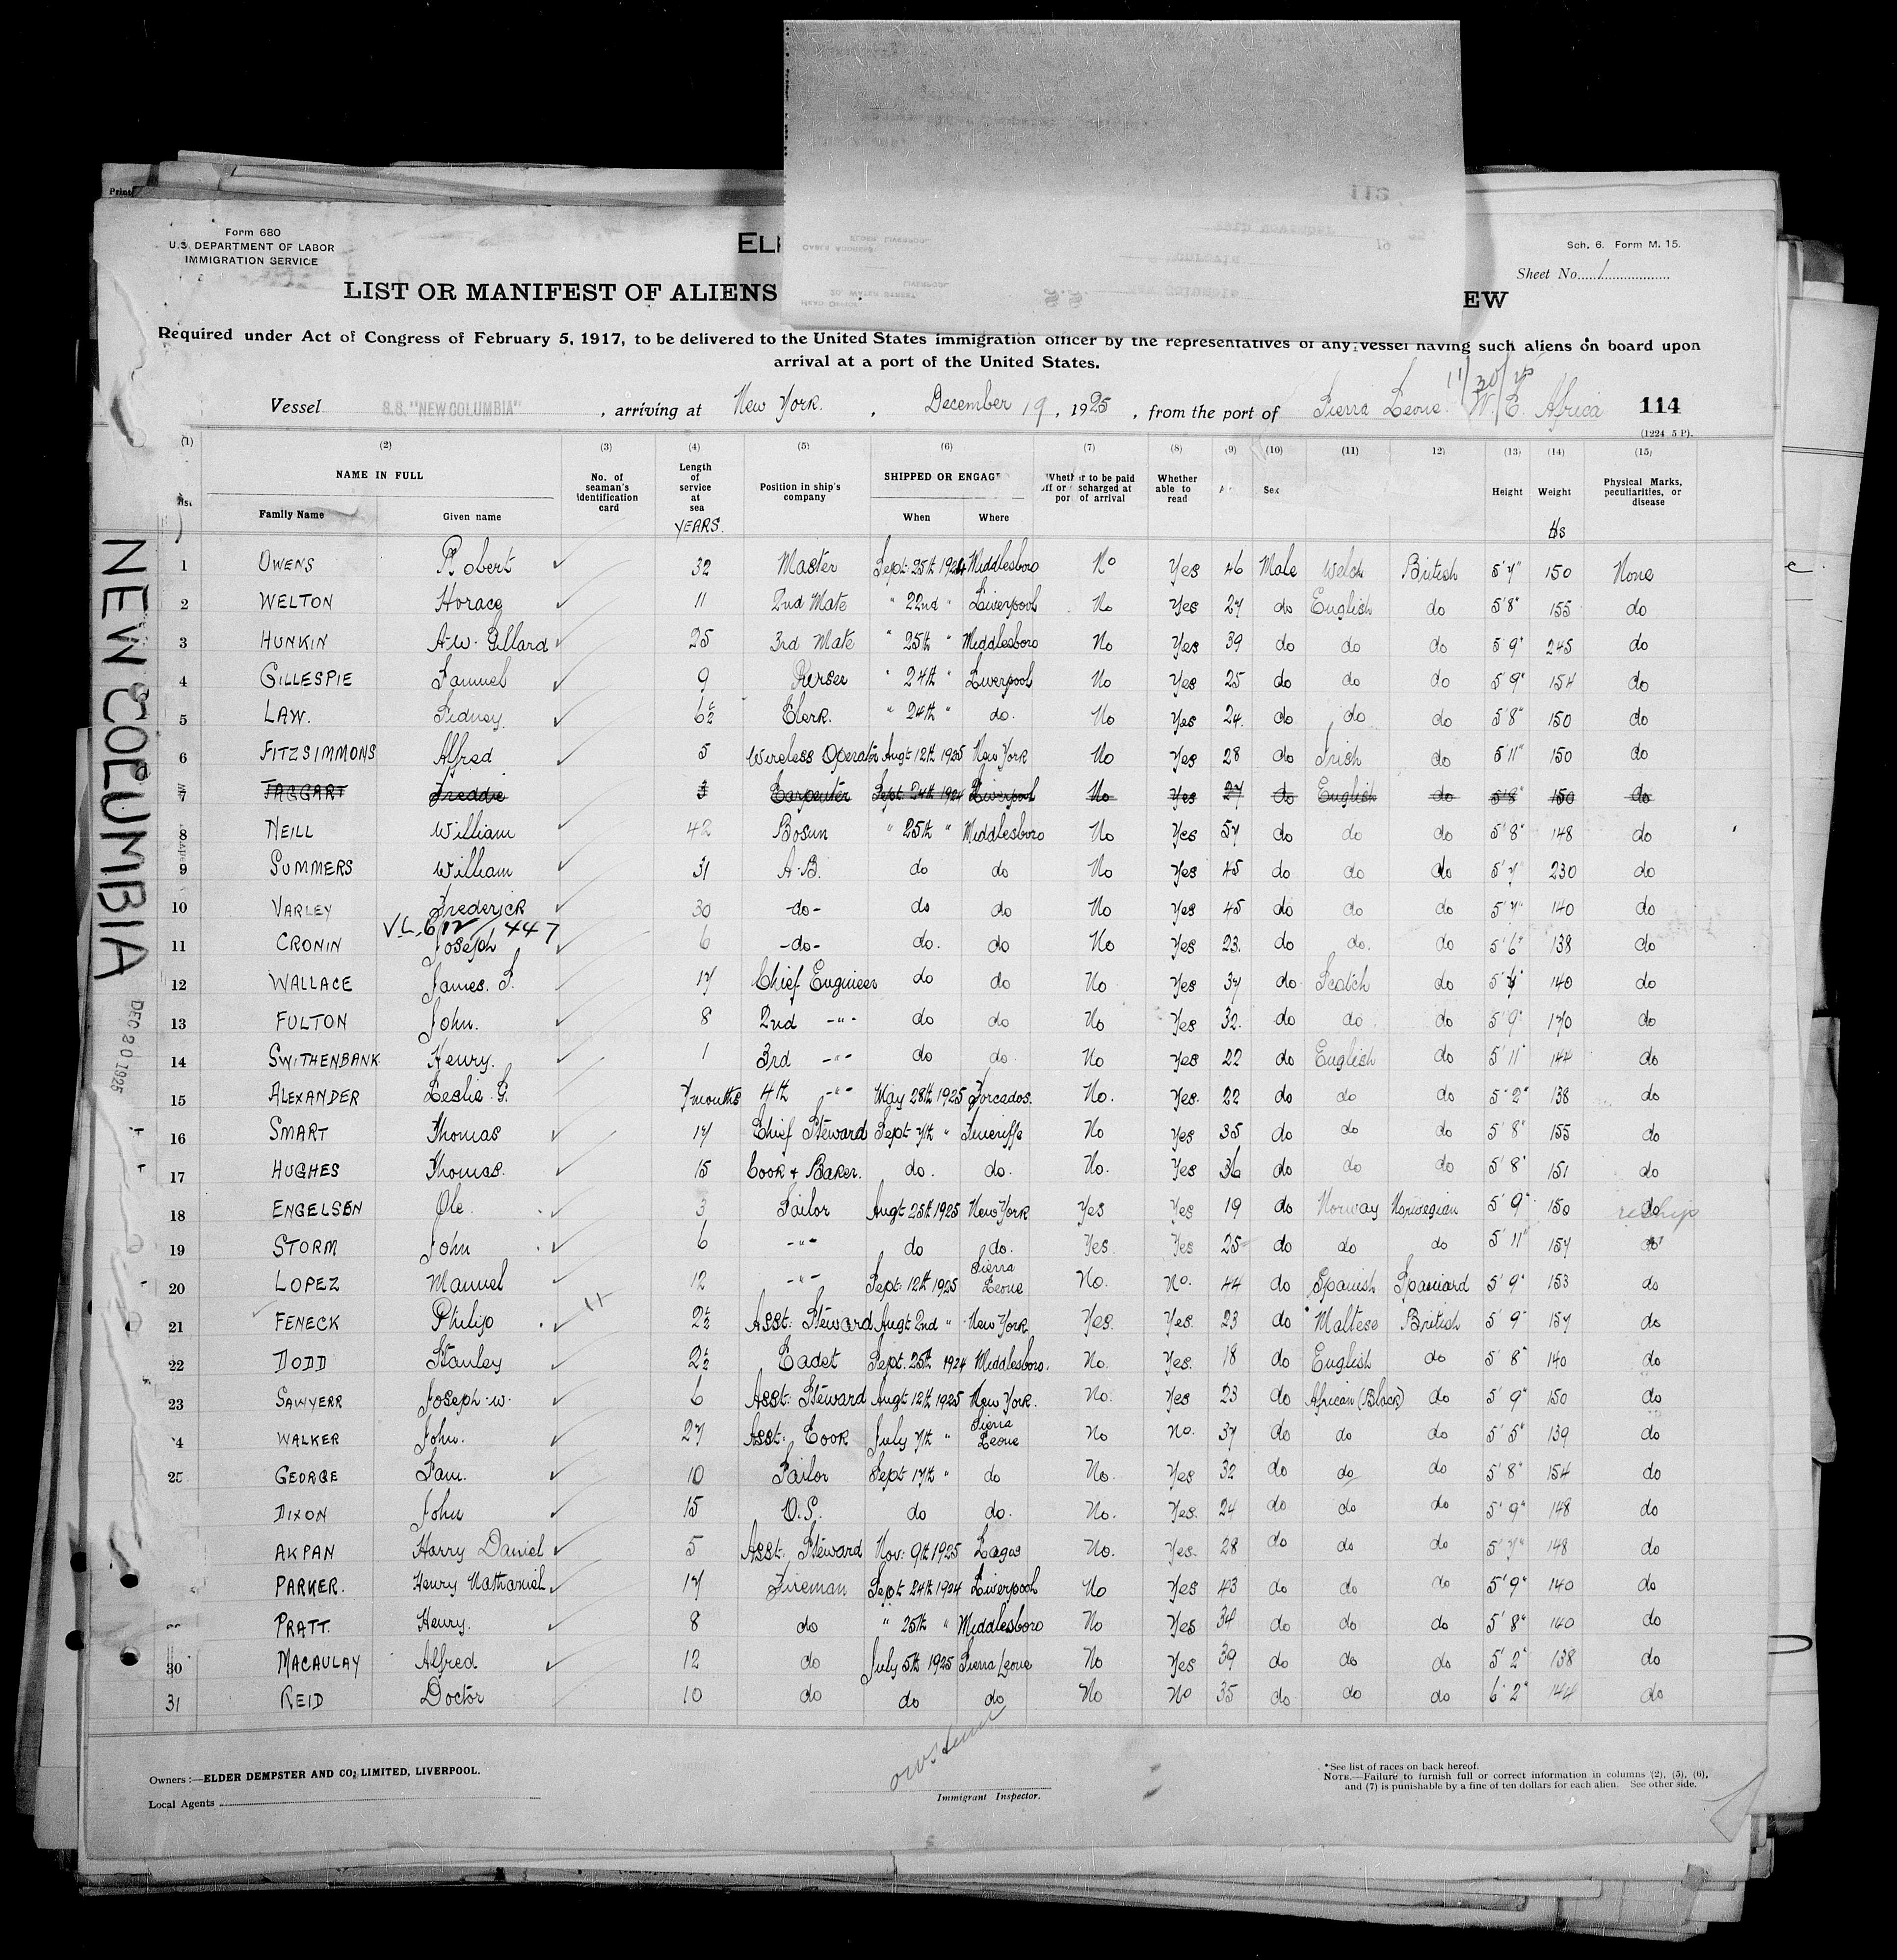 Print
Form 680
U.S. DEPARTMENT OF LABOR
IMMIGRATION SERVICE
Sch. 6. Form M. 15.
Sheet No. 1
LIST OR MANIFEST OF ALIENS
EW
Required under Act of Congress of February 5, 1917, to be delivered to the United States immigration officer by the representatives of any vessel having such aliens on board upon
arrival at a port of the United States.
11/30/25
Vessel S.S. "NEW COLUMBIA", arriving at New York. , December 19, 1925, from the port of Sierra Leone. W. C. Africa 114
(1224 5 P).
(1) (2) (3) (4) (5) (6) (7) (8) (9) (10) (11) 12) (13) (14) (15)
NAME IN FULL
Family Name Given name
No. of seaman's identification card
Length of service at sea YEARS.
Position in ship's company
SHIPPED OR ENGAG
When Where
Whether to be paid off or discharged at port of arrival
Whether able to read
Sex
Height Weight lbs
Physical Marks, peculiarities, or disease
1 OWENS Robert 32 Master Sept: 25th 1924 Middlesboro No Yes 46 Male Welch British 5'7" 150 None
2 WELTON Horace 11 2nd Mate " 22nd " Liverpool No Yes 27 do English do 5'8" 155 do
3 HUNKIN A.W. Gillard 25 3rd Mate " 25th " Middlesboro No Yes 39 do do do 5'9" 245 do
4 GILLESPIE Samuel 9 Purser " 24th " Liverpool No Yes 25 do do do 5'9" 154 do
5 LAW. Sidney. 6½ Clerk. " 24th " do. No Yes 24. do do do 5'8" 150 do
6 FITZSIMMONS Alfred 5 Wireless Operator Augt 12th 1925 New York No Yes 28 do Irish do 5'11" 150 do
7 TAGGART Freddie 3 Carpenter Sept. 24th 1924 Liverpool No Yes 27 do English do 5'8" 150 do
8 NEILL William 42 Bosun " 25th " Middlesboro No Yes 57 do do do 5'8" 148 do
9 SUMMERS William 31 A.B. do do No Yes 45 do do do 5'7" 230 do
10 VARLEY Frederick 30 -do- do do No Yes 45 do do do 5'7" 140 do
11 CRONIN Joseph 6 -do- do. do No Yes 23. do do. do 5'6" 138 do
12 WALLACE James. S. 17 Chief Engineer do do No Yes 37 do Scotch do 140 do
13 FULTON John. 8 2nd -"- do do No Yes 32. do do do 5'9" 170 do
14 SWITHENBANK Henry. 1 3rd -"- do do No Yes 22 do English do 5'11" 144 do
15 ALEXANDER Leslie. G. 7 months 4th -"- May 28th 1925 Forcados. No. Yes. 22 do do do 5'2" 138 do
16 SMART Thomas 17 Chief Steward Sept 7th " Teneriffe No Yes 35 do do do 5'8" 155 do
17 HUGHES Thomas. 15 Cook & Baker. do. do. No. Yes 36 do do do 5'8" 151 do
18 ENGELSEN Ole 3 Sailor Augt 25th 1925 New York Yes Yes 19 do Norway Norwegian 5'9" 150 do reship
19 STORM John 6 -"- do do. Yes Yes 25 do do do 5'11" 157 do
20 LOPEZ Manuel 12 -"- Sept: 12th 1925 Sierra Leone No. No. 44 do Spanish Spaniard 5'9" 153 do
21 FENECK Philip 2½ Asst: Steward Augt 2nd " New York Yes. Yes. 23 do Maltese British 5'9" 157 do
22 DODD Stanley 2½ Cadet Sept. 25th 1924 Middlesboro. No. Yes. 18 do English do 5'8" 140 do
23 SAWYERR Joseph.W. 6 Asst: Steward Augt 12th 1925 New York. No. Yes 23 do African (Black) do 5'9" 150 do
4 WALKER John. 27 Asst. Cook July 7th " Sierra Leone No No. 37 do do do 5'5" 139 do
25 GEORGE Sam. 10 Sailor Sept 17th " do No. Yes 32 do do do 5'8" 154 do
DIXON John 15 O.S. do do. No. Yes. 24 do do do 5'9" 148 do
AKPAN Harry Daniel 5 Asst. Steward Nov: 9th 1925 Lagos No. Yes. 28 do do do 5'7" 148 do
PARKER. Henry Nathaniel 17 Fireman Sept 24th 1924 Liverpool No Yes 43 do do do 5'9" 140 do
PRATT. Henry. 8 do " 25th " Middlesboro No Yes 34 do do do 5'8" 140 do
30 MACAULAY Alfred. 12 do July 5th 1925 Sierra Leone No Yes 39 do do do 5'2" 138 do
31 REID Doctor 10 do do do No No 35 do do do 6'2" 144 do
V.L. 612/447
NEW COLUMBIA
DEC 20 1925
Owners:—ELDER DEMPSTER AND CO., LIMITED, LIVERPOOL.
Local Agents
Immigrant Inspector.
*See list of races on back hereof.
NOTE.—Failure to furnish full or correct information in columns (2), (5), (6),
and (7) is punishable by a fine of ten dollars for each alien. See other side.